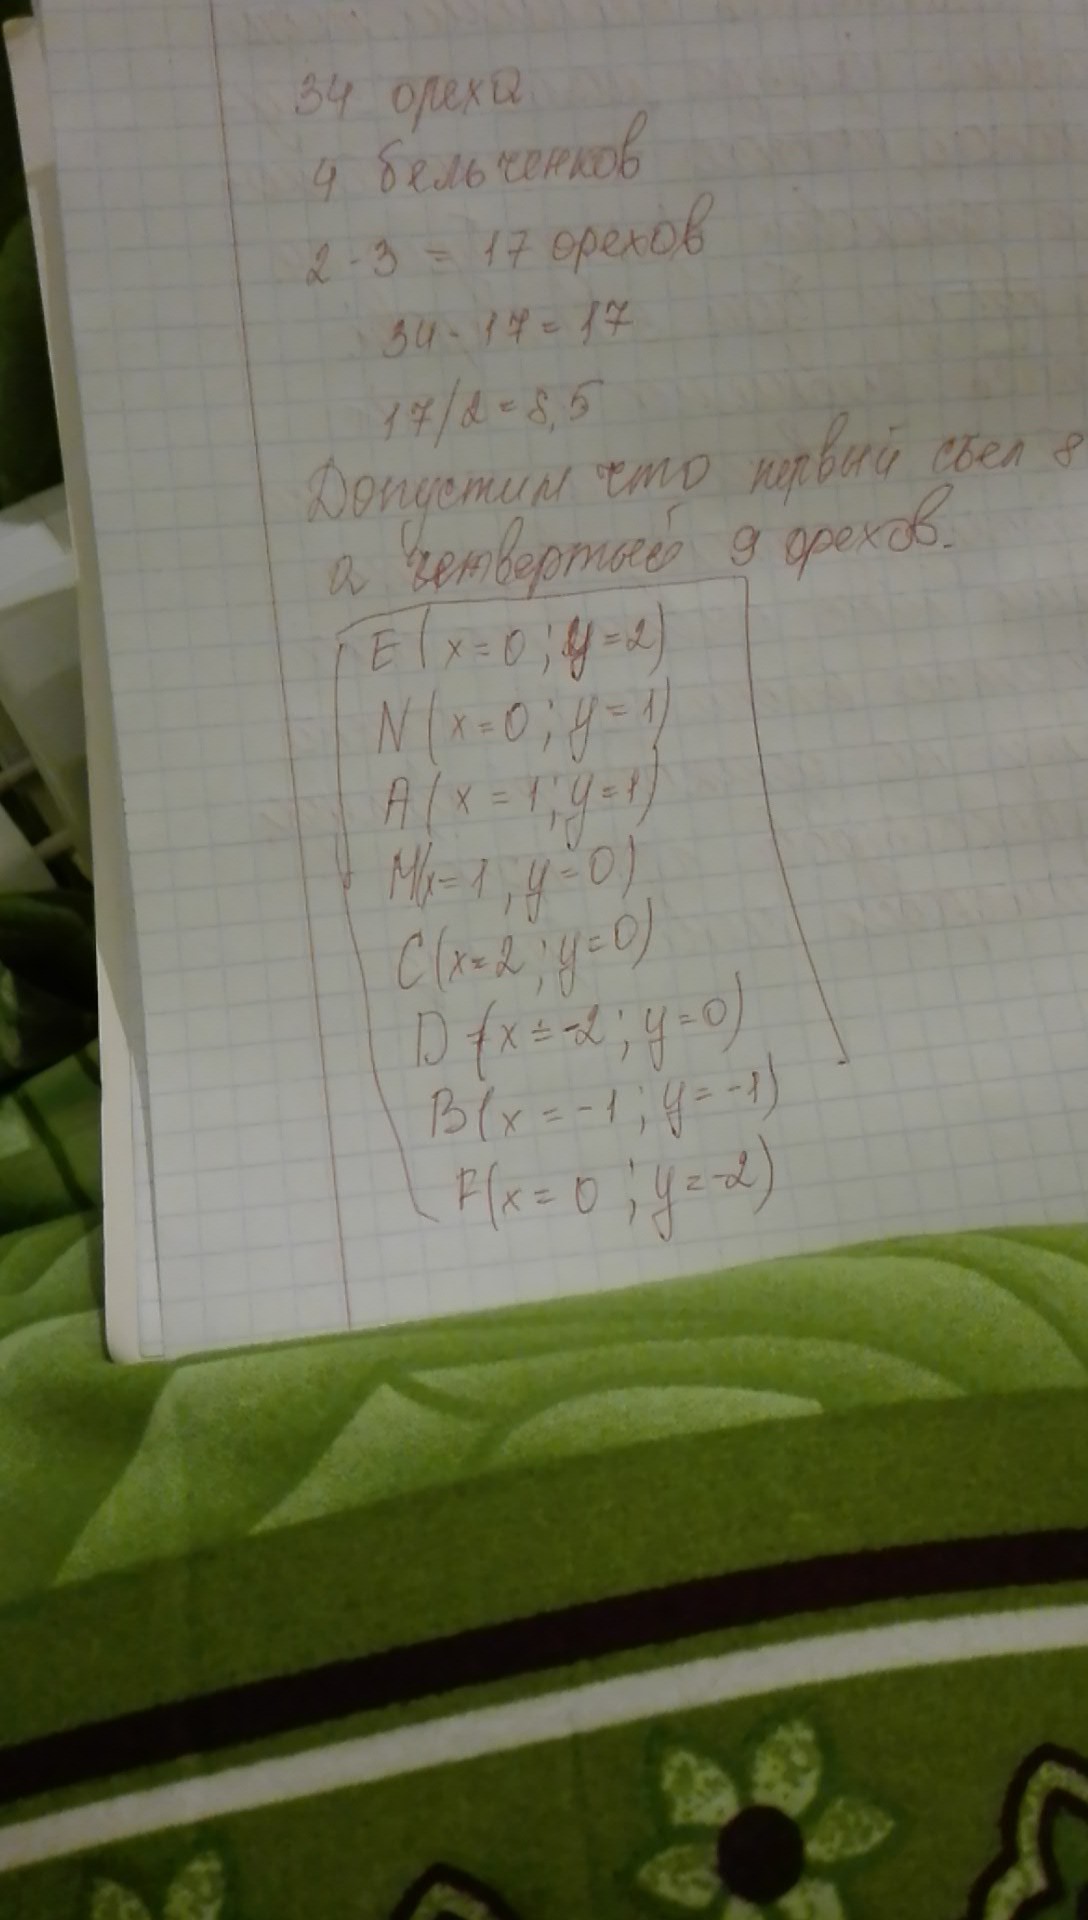 34 ореха
4 бельченков
2-3 = 17 орехов
34-17=17
17/2=8,5
Допустим что первый съел 8
а четвертый 9 орехов.
E(x=0; y=2)
N(x=0; y=1)
A(x=1; y=1)
M(x=1; y=0)
C(x=2; y=0)
D(x=-2; y=0)
B(x=-1; y=-1)
F(x=0; y=-2)